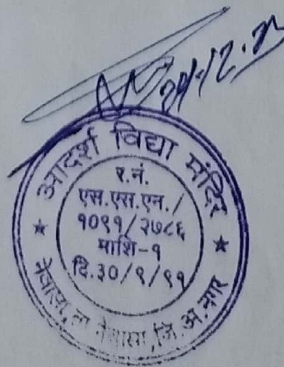 आदर्श विद्या मंदिर
र.नं.
एस.एस.एन./
१०९१/२७८६
माशि-१
दि.३०/९/९१
नेवासा, ता नेवासा, जि.अ.नगर